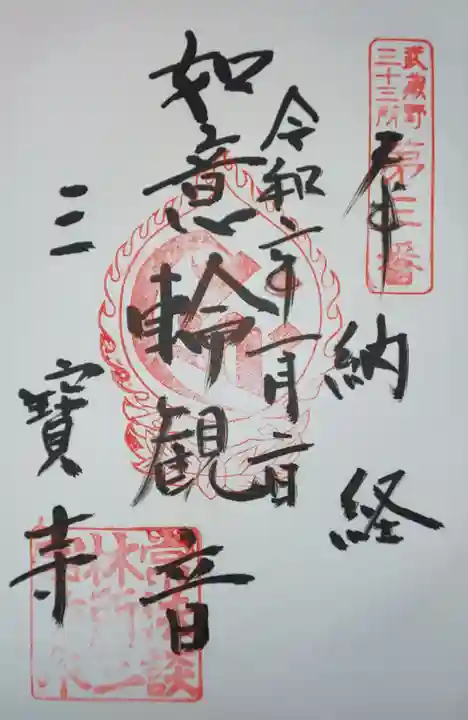 武蔵野
三十三所
第三番
奉納経
令和二年一月二日
如意輪観音
三寶寺
常法談